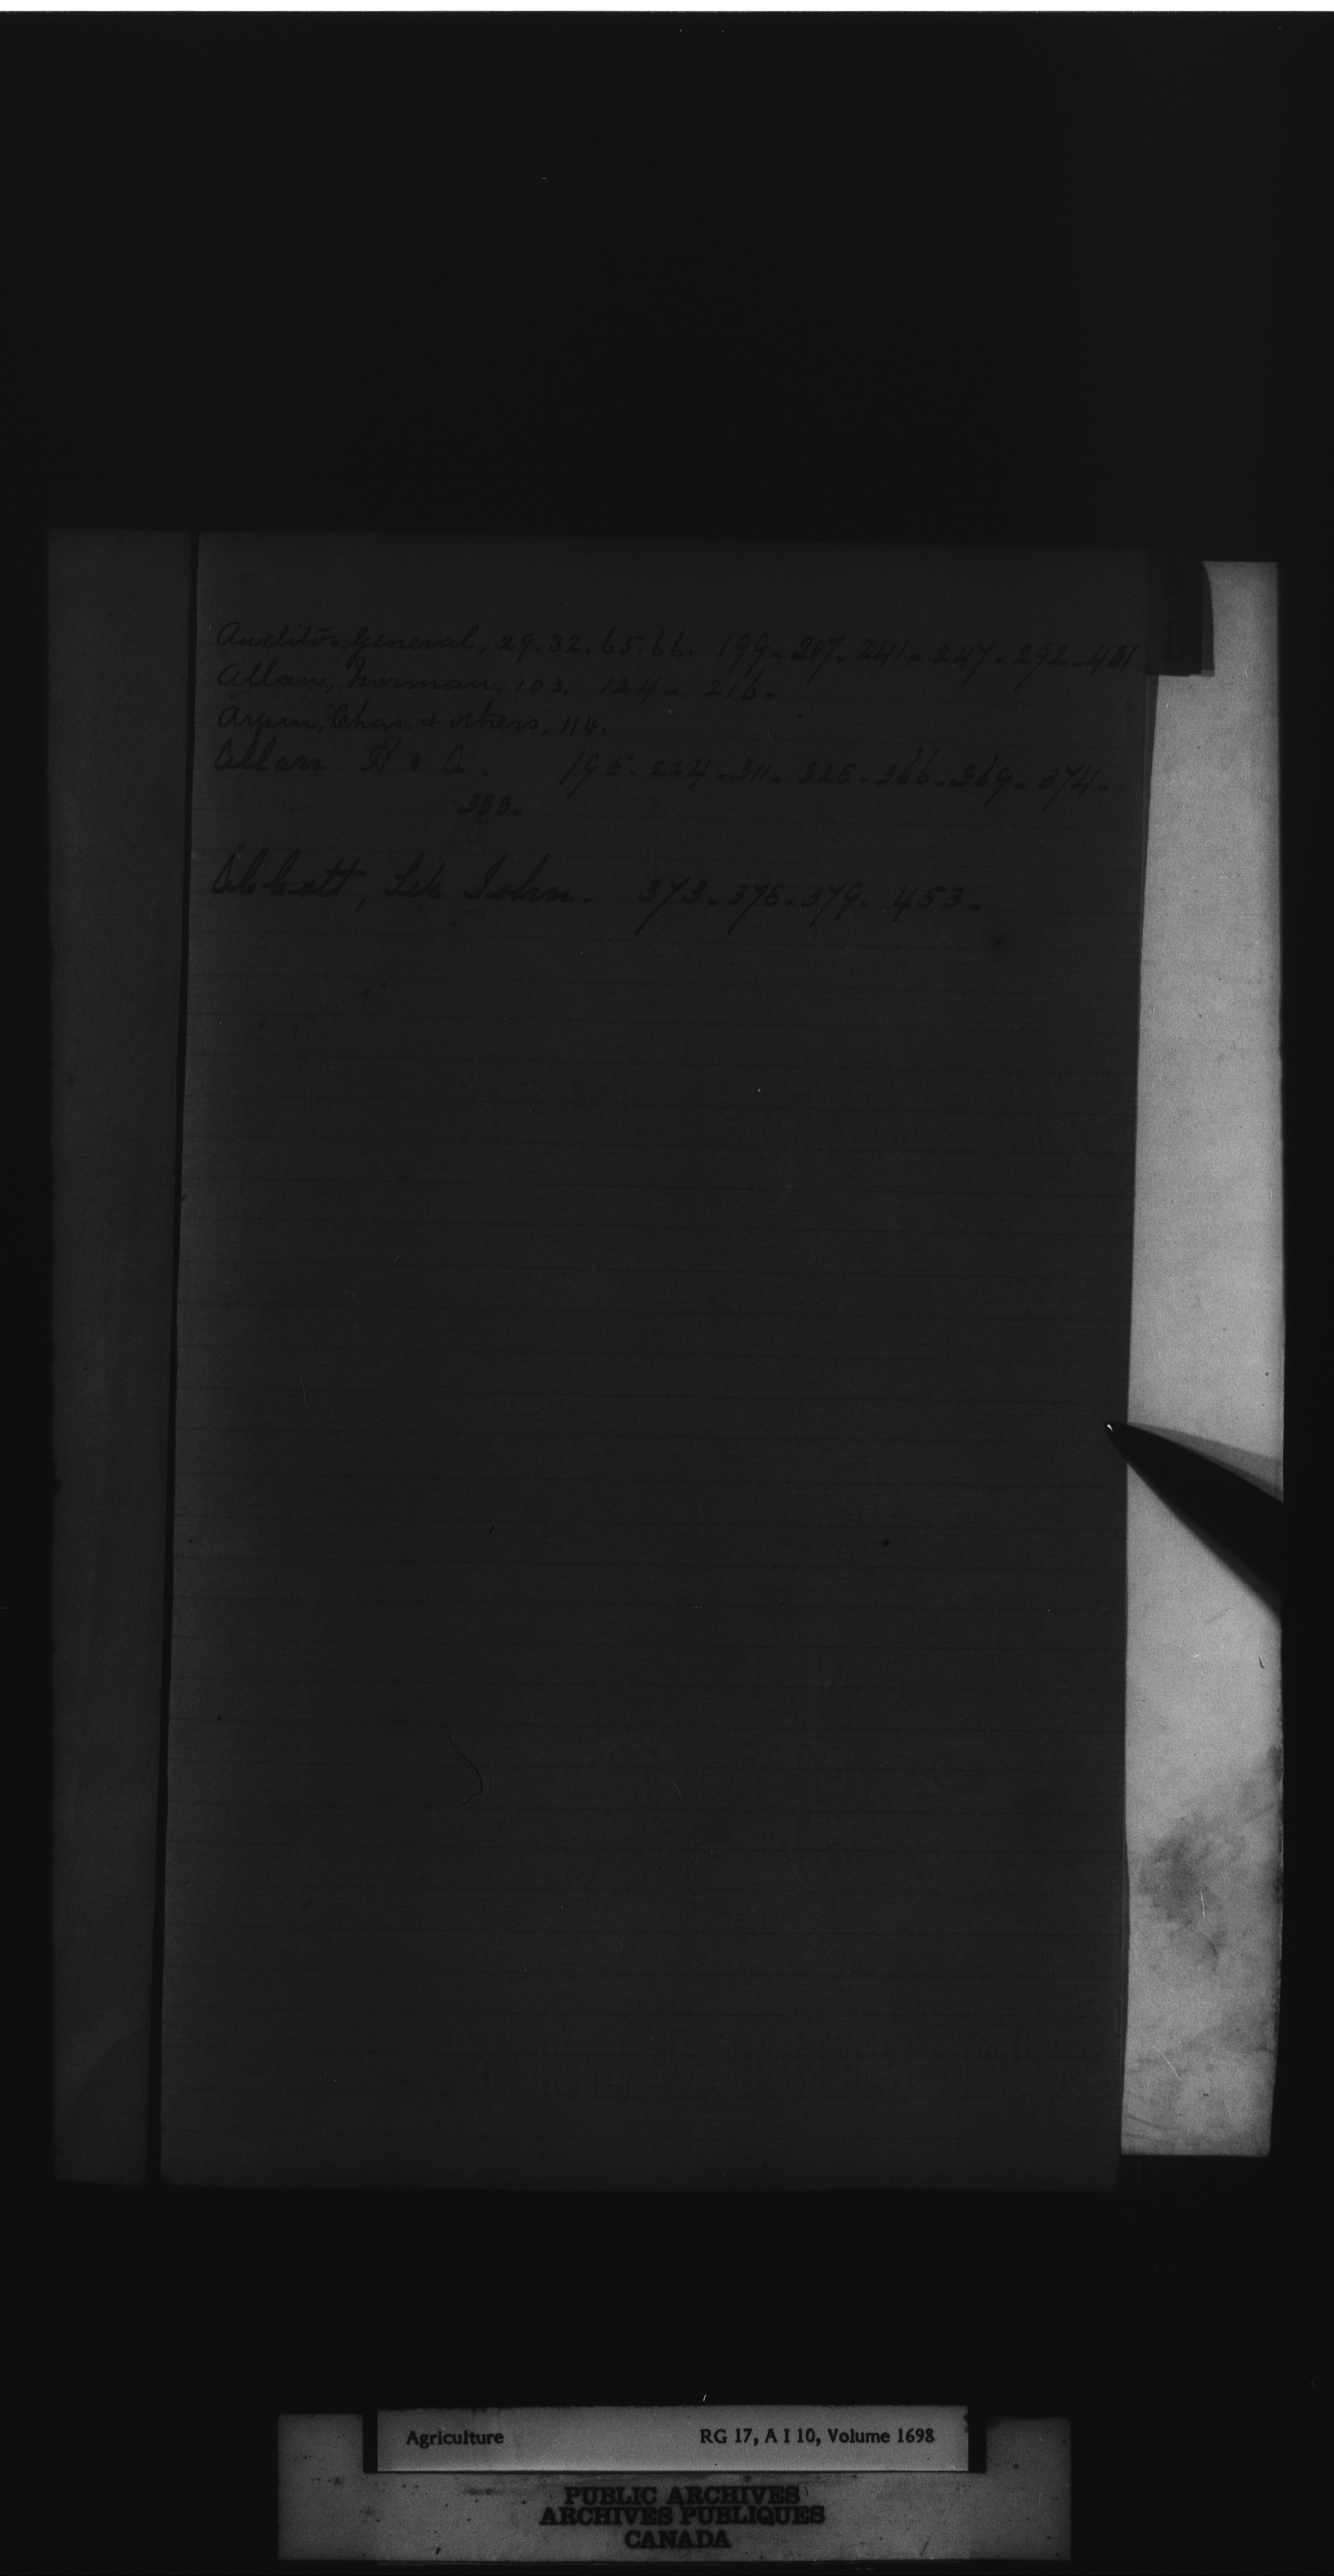 A
B
Auditor General, 29. 32. 65. 66. 199 - 207 - 241 - 247 - 292 - 431
Allan, Norman. 103. 124 - 216 -
Arpin, Chas. & others, 114.
Allan H & A. 195 - 224 - 311 - 325 - 366 - 369 - 374 -
383 -
Abbott, Sir John. 373 - 376 - 379 - 453 -
Agriculture RG 17, A I 10, Volume 1698
PUBLIC ARCHIVES
ARCHIVES PUBLIQUES
CANADA